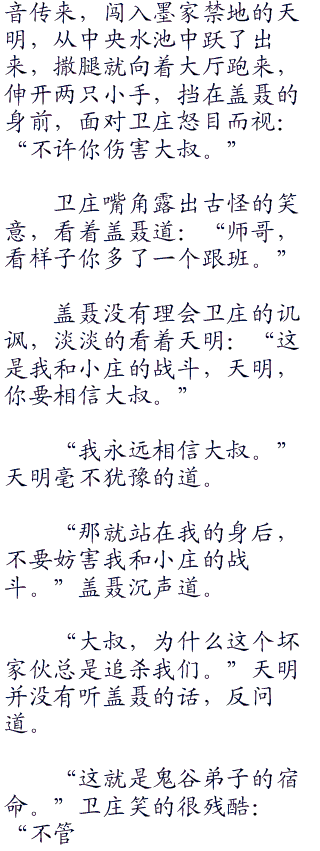 音传来，闯入墨家禁地的天
明，从中央水池中跃了出
来，撒腿就向着大厅跑来，
伸开两只小手，挡在盖聂的
身前，面对卫庄怒目而视：
“不许你伤害大叔。”
卫庄嘴角露出古怪的笑
意，看着盖聂道：“师哥，
看样子你多了一个跟班。”
盖聂没有理会卫庄的讥
讽，淡淡的看着天明：“这
是我和小庄的战斗，天明，
你要相信大叔。”
“我永远相信大叔。”
天明毫不犹豫的道。
“那就站在我的身后，
不要妨害我和小庄的战
斗。”盖聂沉声道。
“大叔，为什么这个坏
家伙总是追杀我们。”天明
并没有听盖聂的话，反问
道。
“这就是鬼谷弟子的宿
命。”卫庄笑的很残酷：
“不管